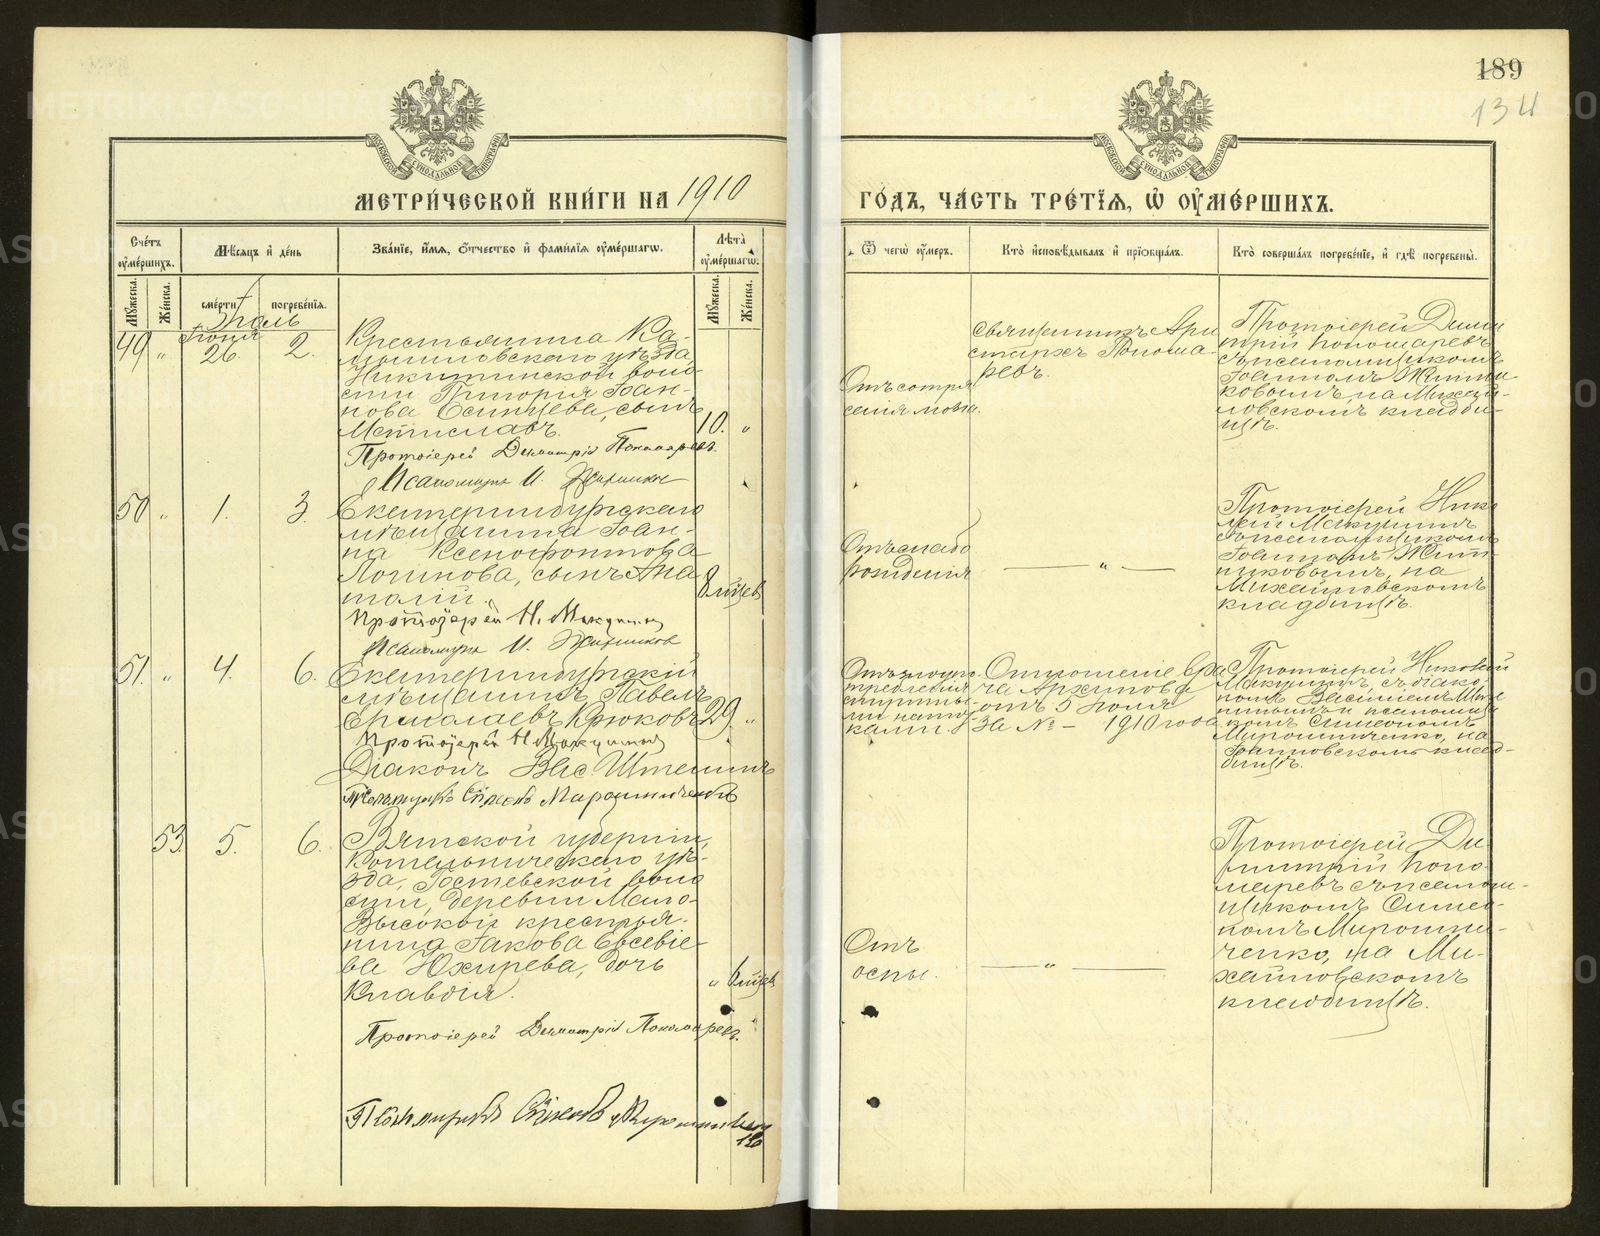 189
134
МЕТРИ́ЧЕСКОЙ КНИ́ГИ НА 1910
ГО́ДЪ, ЧА́СТЬ ТРЕ́ТІЯ, Ѽ ОУ҆МЕ́РШИХЪ.
Сче́тъ оу҆ме́ршихъ.
Мѣ́сяцъ и҆ де́нь
Зва́ніе, и҆́мя, ѻ҆́тчество и҆ фами́лія оу҆ме́ршагѡ.
Лѣ́та оу҆ме́ршагѡ.
Ѿ чегѡ̀ оу҆́меръ.
Кто̀ и҆сповѣ́дывалъ и҆ пріѻбща́лъ.
Кто̀ соверша́лъ погребе́ніе, и҆ гдѣ̀ погребены̀.
Мꙋ́жеска.
Же́нска.
сме́рти
погребе́нія.
Мꙋ́жеска.
Же́нска.
Іюль
Іюня
49 „ 26. 2.
Крестьянина Ка-
мышловскаго уѣзда,
Никитинской воло-
сти Григорія Іоан-
нова Осинцева, сынъ
Мстиславъ.
10. „
Протоіерей Димитрій Пономаревъ.
Псаломщикъ И. Житниковъ
Отъ сотря
сенія мозга.
Священникъ Ари
стархъ Понома-
ревъ.
Протоіерей Дими
трій Пономаревъ
съ псаломщикомъ
Іоанномъ Житни
ковымъ, на Михай-
ловскомъ кладби-
щѣ.
50 „ 1. 3.
Екатеринбургскаго
мѣщанина Іоан-
на Ксенофонтова
Логинова, сынъ Ана
толій.
8 мѣсцев
Протоіерей Н. Макушин
Псаломщикъ И. Житников
Отъ слабо
рожденія
— „ —
Протоіерей Нико
лай Макушинъ
съ псаломщикомъ
Іоанномъ Жит-
никовымъ, на
Михайловскомъ
кладбищѣ.
51. „ 4. 6.
Екатеринбургскій
мѣщанинъ Павелъ
Ермолаевъ Крюковъ
29 „
Протоіерей Н Макушин
Діаконъ Вас Штенинъ
Псаломщикъ Симеонъ Мирошниченко
Отъ злоупо
требленія
спиртны-
ми напит
ками.
Отношеніе вра
ча Архипова
отъ 5 Іюля
За № – 1910 года
Протоіерей Николай
Макушинъ, съ діако-
номъ Василіемъ Ште
нинымъ и псаломщи
комъ Симеономъ
Мирошниченко, на
Іоанновскомъ клад-
бищѣ.
53. 5. 6.
Вятской губерніи,
Котельническаго уѣ-
зда, Гостевской воло
сти, деревни Мало-
Высокой крестья-
нина Іакова Евсевіе-
ва Юхирева, дочь
Клавдія.
„ 6 мѣсев
Протоіерей Димитрій Пономаревъ.
Псаломщикъ Симеонъ Мирошничен
ко
Отъ
оспы.
— „ —
Протоіерей Ди-
митрій Поно-
маревъ съ псалом-
щикомъ Симео-
номъ Мирошни-
ченко, на Ми-
хайловскомъ
кладбищѣ.